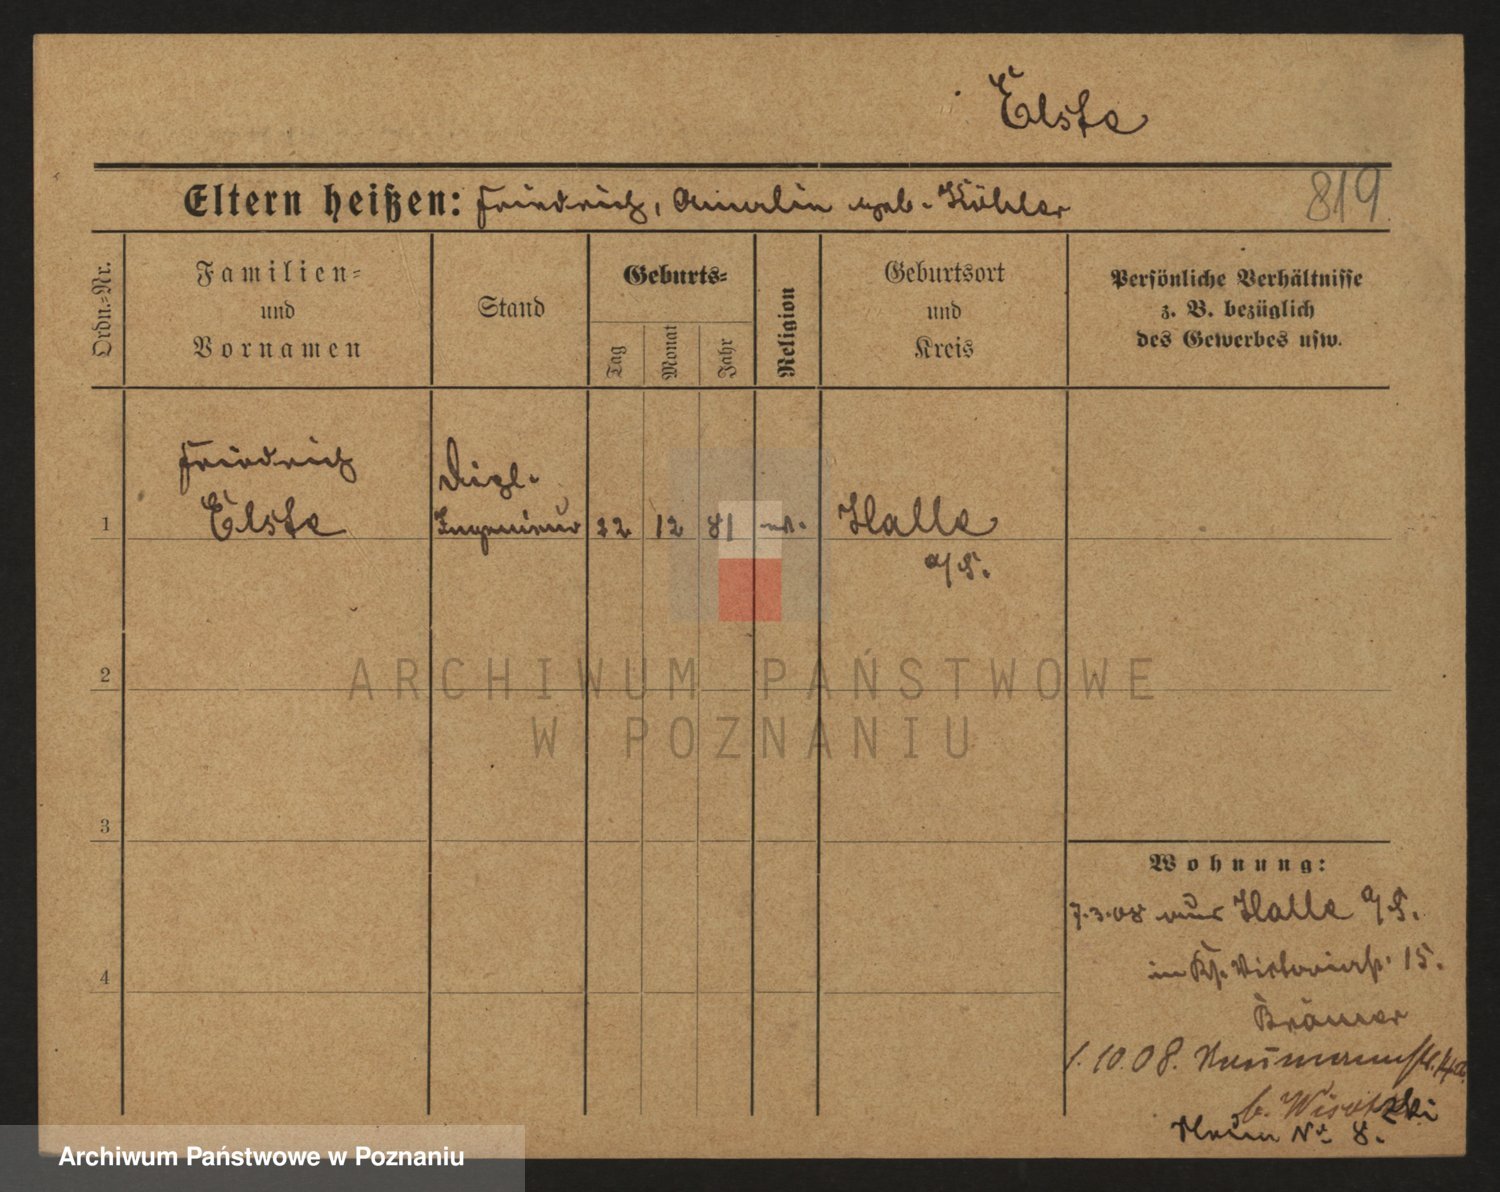 Elste
Eltern heißen: Friedrich, Amalie geb. Köhler
819
Ordn.-Nr.
Familien-
und
Vornamen
Stand
Geburts-
Tag
Monat
Jahr
Religion
Geburtsort
und
Kreis
Persönliche Verhältnisse
z. B. bezüglich
des Gewerbes usw.
Friedrich
Dipl.
1 Elste Ingenieur 22 12 81 ev. Halle
a/S.
2
3
4
Wohnung:
7.3.08 aus Halle a/S.
in Victoriastr. 15.
Krämer
1.10.08. Naumannstr. 14a
b. Wisotzki
Nr 8.
ARCHIWUM PAŃSTWOWE
W POZNANIU
Archiwum Państwowe w Poznaniu